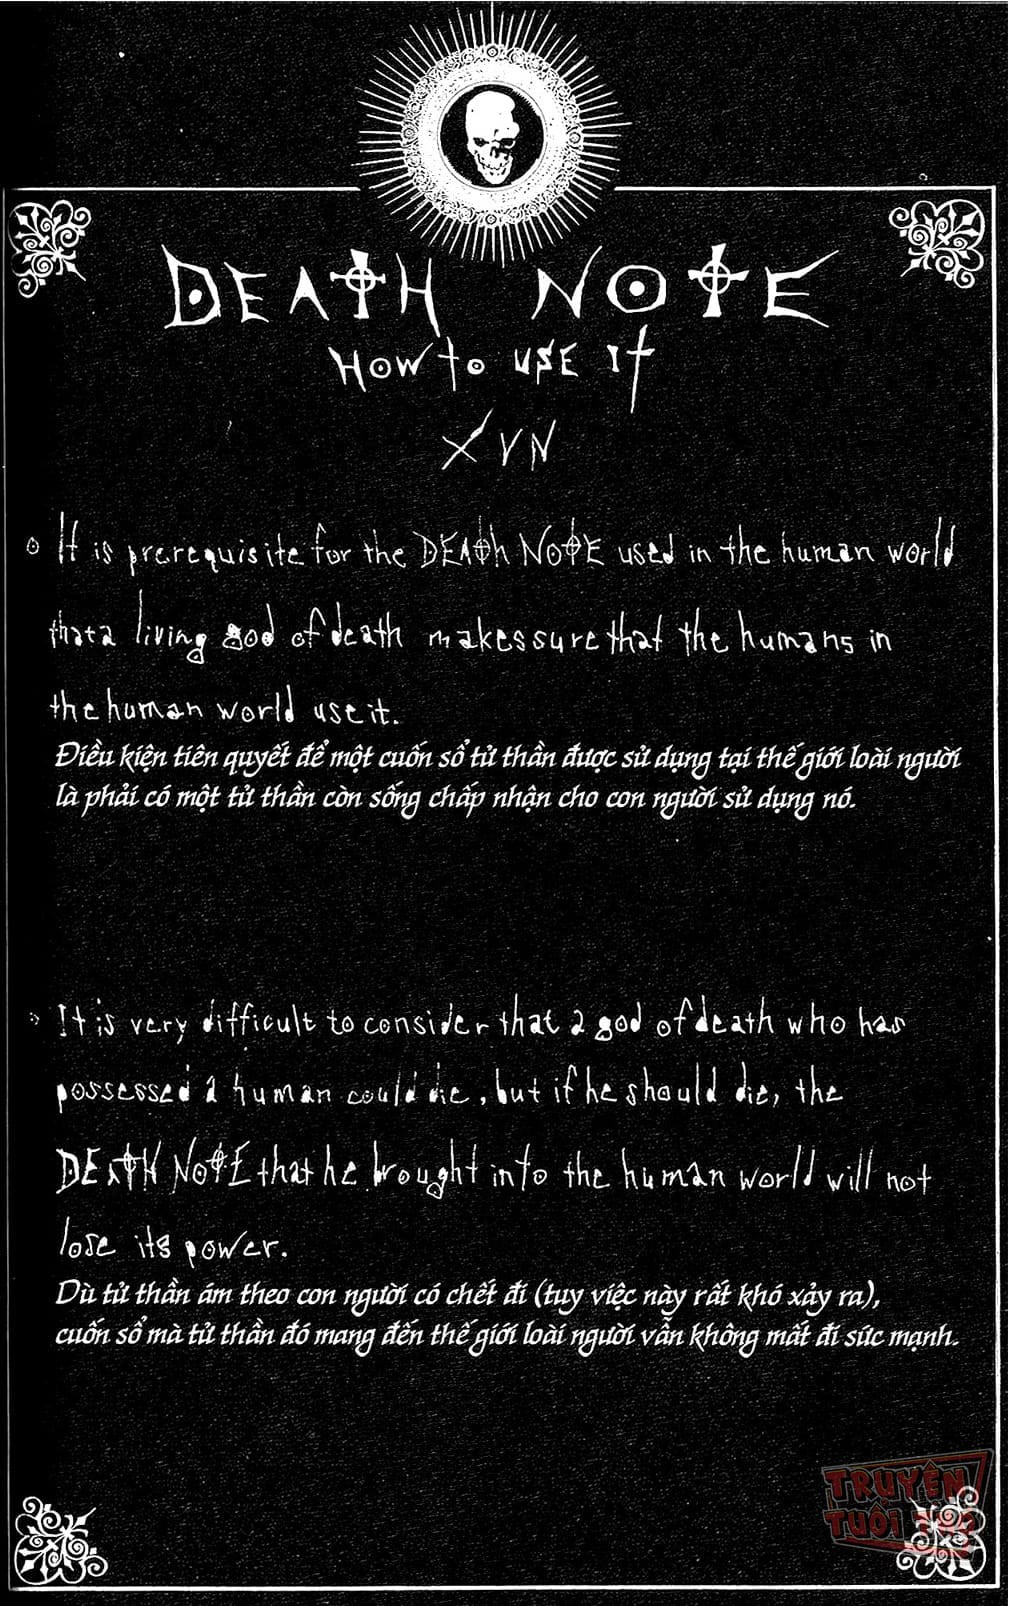 DEATH NOTE
HOW to USE It
XVII
It is prerequisite for the DEAth NOtE used in the human world
that a living god of death makes sure that the humans in
the human world use it.
Điều kiện tiên quyết để một cuốn sổ tử thần được sử dụng tại thế giới loài người
là phải có một tử thần còn sống chấp nhận cho con người sử dụng nó.
It is very difficult to consider that a god of death who has
possessed a human could die, but if he should die, the
DEAtH NOtE that he brought into the human world will not
lose its power.
Dù tử thần ám theo con người có chết đi (tuy việc này rất khó xảy ra),
cuốn sổ mà tử thần đó mang đến thế giới loài người vẫn không mất đi sức mạnh.
TRUYỆN
TUỔI THƠ